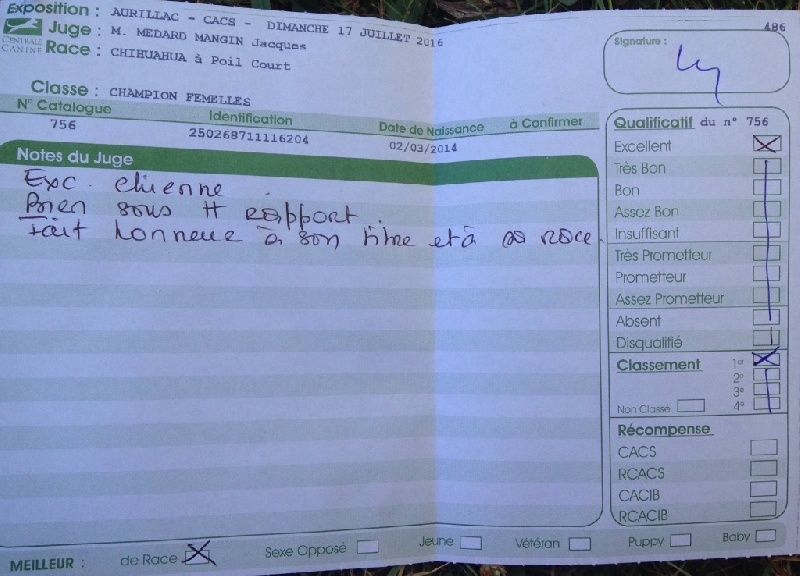 Exposition : AURILLAC - CACS - DIMANCHE 17 JUILLET 2016
486
Juge : M. MEDARD MANGIN Jacques
CENTRALE CANINE
Race : CHIHUAHUA à Poil Court
Signature :
Classe : CHAMPION FEMELLES
N° Catalogue Identification Date de Naissance à Confirmer
756 250268711116204 02/03/2014
Notes du Juge
Exc. chienne
Bien sous tt rapport.
Fait honneur à son titre et à sa race.
Qualificatif du n° 756
Excellent
Très Bon
Bon
Assez Bon
Insuffisant
Très Prometteur
Prometteur
Assez Prometteur
Absent
Disqualifié
Classement 1er
2e
3e
Non Classe 4e
Récompense
CACS
RCACS
CACIB
RCACIB
MEILLEUR : de Race Sexe Opposé Jeune Vétéran Puppy Baby